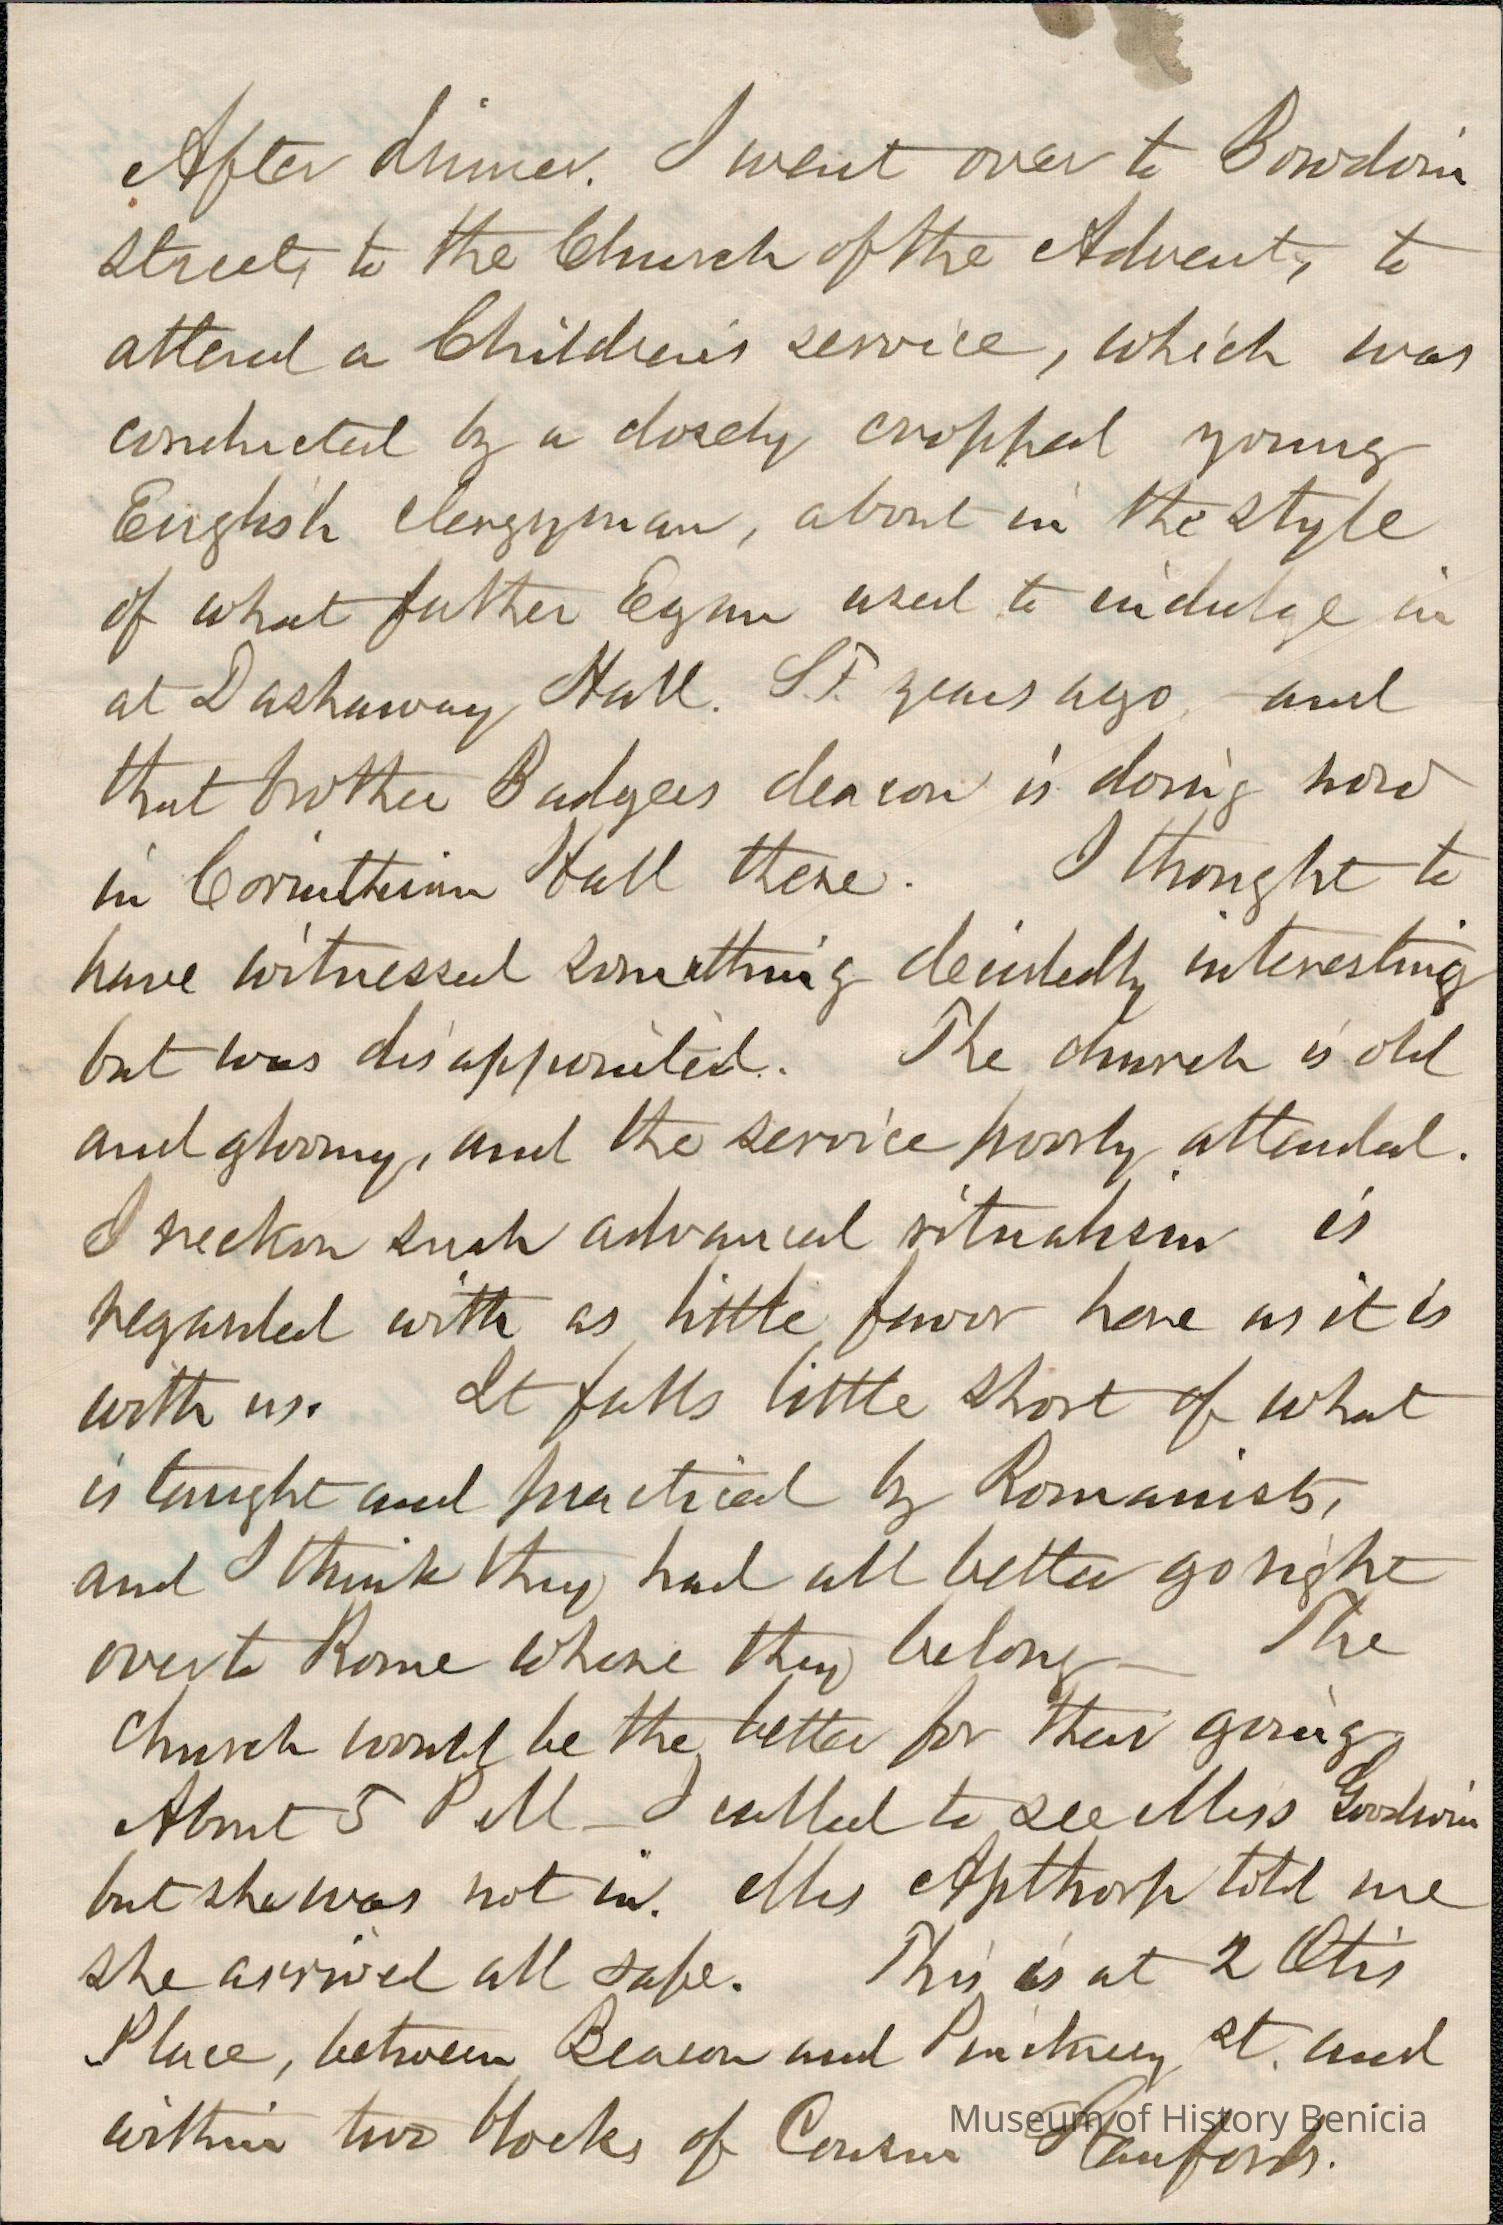 After dinner. I went over to Bowdoin
street, to the Church of the Advent, to
attend a Children's service, which was
conducted by a closely cropped young
English clergyman, about in the style
of what father Egan used to indulge in
at Dashaway Hall. S.F. years ago, and
that brother Badgers deacon is doing now
in Corinthian Hall there. I thought to
have witnessed something decidedly interesting
but was disappointed. The church is old
and gloomy, and the service poorly attended.
I reckon such advanced ritualism is
regarded with as little favor here as it is
with us. It falls little short of what
is taught and practiced by Romanists,
and I think they had all better go right
over to Rome where they belong — The
church would be the better for their going
About 5 P M — I called to see Miss Goodwin
but she was not in. Mrs Apthorp told me
she arrived all safe. This is at 2 Otis
Place, between Beacon and Pinckney st. and
within two blocks of Cousin
Museum of History Benicia